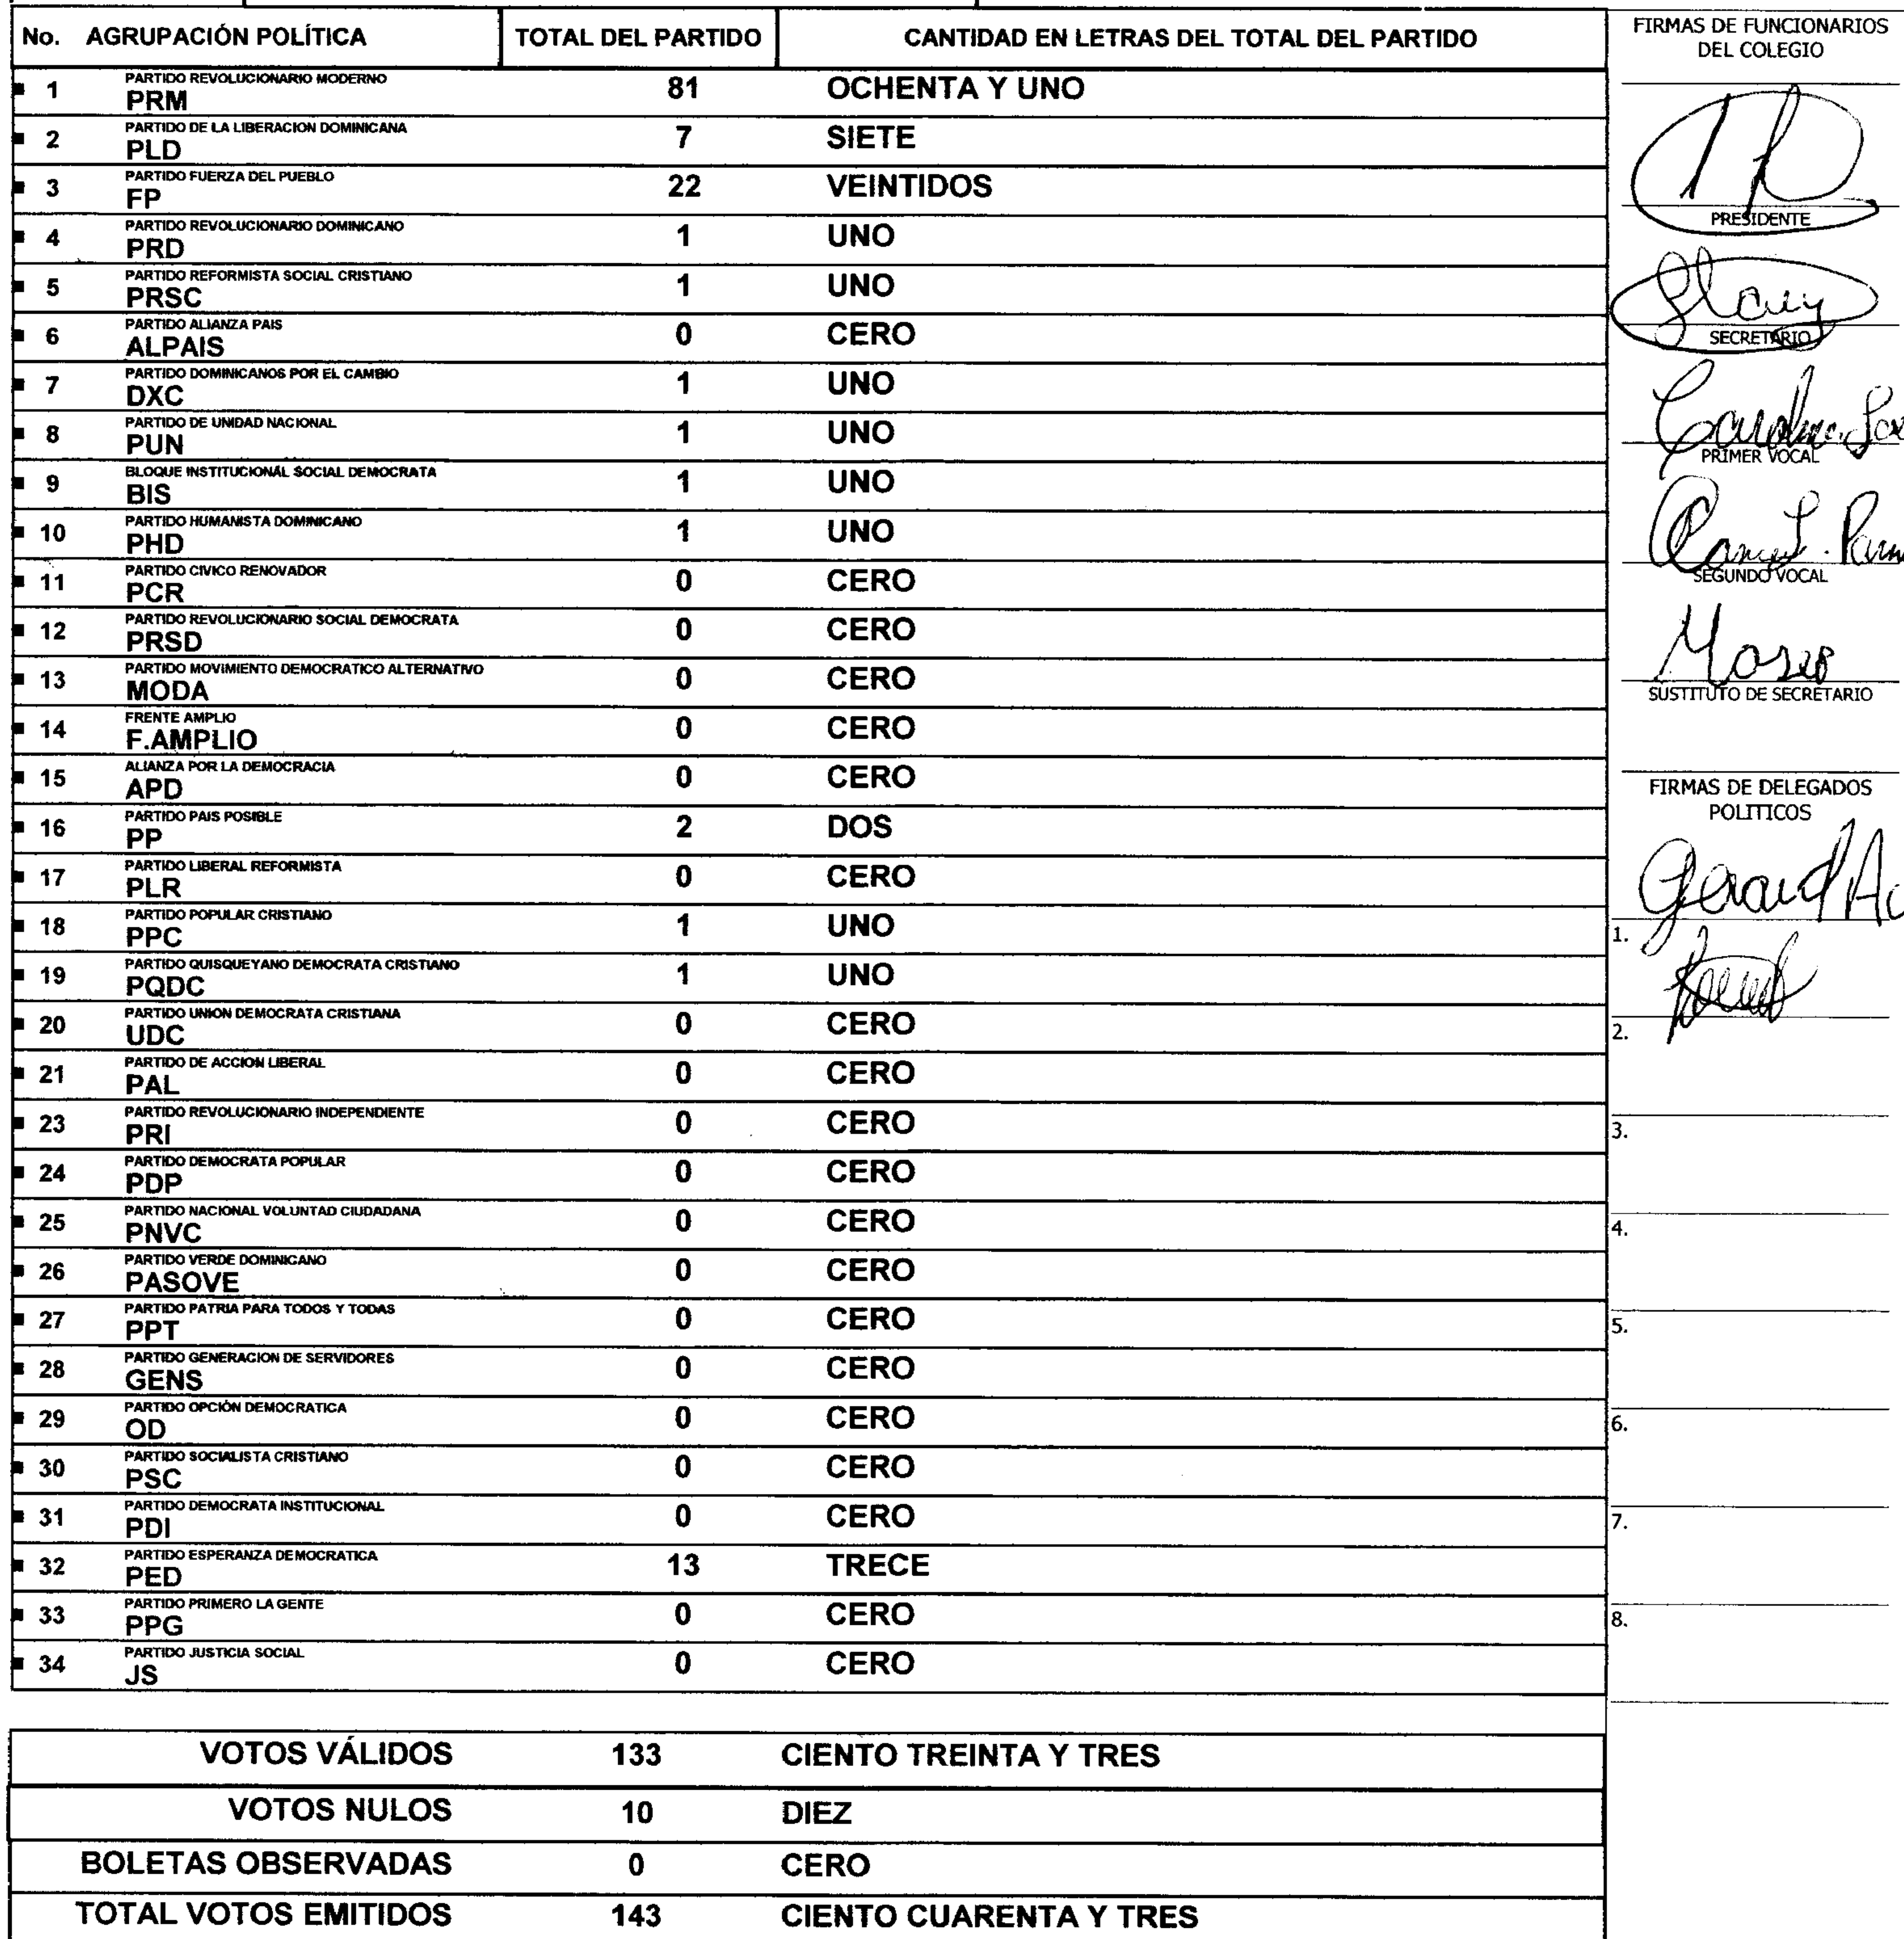 No. AGRUPACIÓN POLÍTICA TOTAL DEL PARTIDO CANTIDAD EN LETRAS DEL TOTAL DEL PARTIDO
PARTIDO REVOLUCIONARIO MODERNO
1 PRM 81 OCHENTA Y UNO
PARTIDO DE LA LIBERACION DOMINICANA
2 PLD 7 SIETE
PARTIDO FUERZA DEL PUEBLO
3 FP 22 VEINTIDOS
PARTIDO REVOLUCIONARIO DOMINICANO
4 PRD 1 UNO
PARTIDO REFORMISTA SOCIAL CRISTIANO
5 PRSC 1 UNO
PARTIDO ALIANZA PAIS
6 ALPAIS 0 CERO
PARTIDO DOMINICANOS POR EL CAMBIO
7 DXC 1 UNO
PARTIDO DE UNIDAD NACIONAL
8 PUN 1 UNO
BLOQUE INSTITUCIONAL SOCIAL DEMOCRATA
9 BIS 1 UNO
PARTIDO HUMANISTA DOMINICANO
10 PHD 1 UNO
PARTIDO CIVICO RENOVADOR
11 PCR 0 CERO
PARTIDO REVOLUCIONARIO SOCIAL DEMOCRATA
12 PRSD 0 CERO
PARTIDO MOVIMIENTO DEMOCRATICO ALTERNATIVO
13 MODA 0 CERO
FRENTE AMPLIO
14 F.AMPLIO 0 CERO
ALIANZA POR LA DEMOCRACIA
15 APD 0 CERO
PARTIDO PAIS POSIBLE
16 PP 2 DOS
PARTIDO LIBERAL REFORMISTA
17 PLR 0 CERO
PARTIDO POPULAR CRISTIANO
18 PPC 1 UNO
PARTIDO QUISQUEYANO DEMOCRATA CRISTIANO
19 PQDC 1 UNO
PARTIDO UNION DEMOCRATA CRISTIANA
20 UDC 0 CERO
PARTIDO DE ACCION LIBERAL
21 PAL 0 CERO
PARTIDO REVOLUCIONARIO INDEPENDIENTE
23 PRI 0 CERO
PARTIDO DEMOCRATA POPULAR
24 PDP 0 CERO
PARTIDO NACIONAL VOLUNTAD CIUDADANA
25 PNVC 0 CERO
PARTIDO VERDE DOMINICANO
26 PASOVE 0 CERO
PARTIDO PATRIA PARA TODOS Y TODAS
27 PPT 0 CERO
PARTIDO GENERACION DE SERVIDORES
28 GENS 0 CERO
PARTIDO OPCIÓN DEMOCRATICA
29 OD 0 CERO
PARTIDO SOCIALISTA CRISTIANO
30 PSC 0 CERO
PARTIDO DEMOCRATA INSTITUCIONAL
31 PDI 0 CERO
PARTIDO ESPERANZA DEMOCRATICA
32 PED 13 TRECE
PARTIDO PRIMERO LA GENTE
33 PPG 0 CERO
PARTIDO JUSTICIA SOCIAL
34 JS 0 CERO
VOTOS VÁLIDOS 133 CIENTO TREINTA Y TRES
VOTOS NULOS 10 DIEZ
BOLETAS OBSERVADAS 0 CERO
TOTAL VOTOS EMITIDOS 143 CIENTO CUARENTA Y TRES
FIRMAS DE FUNCIONARIOS
DEL COLEGIO
PRESIDENTE
SECRETARIO
PRIMER VOCAL
SEGUNDO VOCAL
SUSTITUTO DE SECRETARIO
FIRMAS DE DELEGADOS
POLITICOS
1.
2.
3.
4.
5.
6.
7.
8.